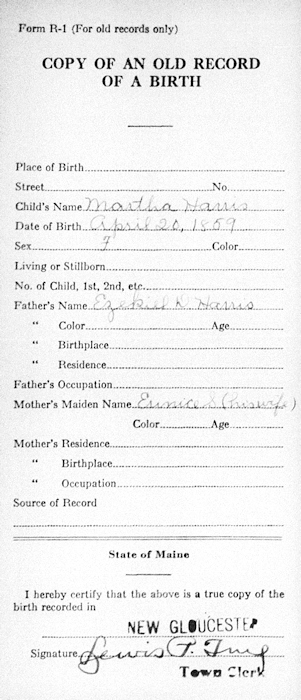 Form R-1 (For old records only)
COPY OF AN OLD RECORD
OF A BIRTH
Place of Birth
Street No.
Child's Name Martha Harris
Date of Birth April 20, 1859
Sex F Color
Living or Stillborn
No. of Child, 1st, 2nd, etc.
Father's Name Ezekiel D. Harris
" Color Age
" Birthplace
" Residence
Father's Occupation
Mother's Maiden Name Eunice S (his wife)
Color Age
Mother's Residence
" Birthplace
" Occupation
Source of Record
State of Maine
I hereby certify that the above is a true copy of the
birth recorded in
NEW GLOUCESTER
Signature Lewis P.
Town Clerk